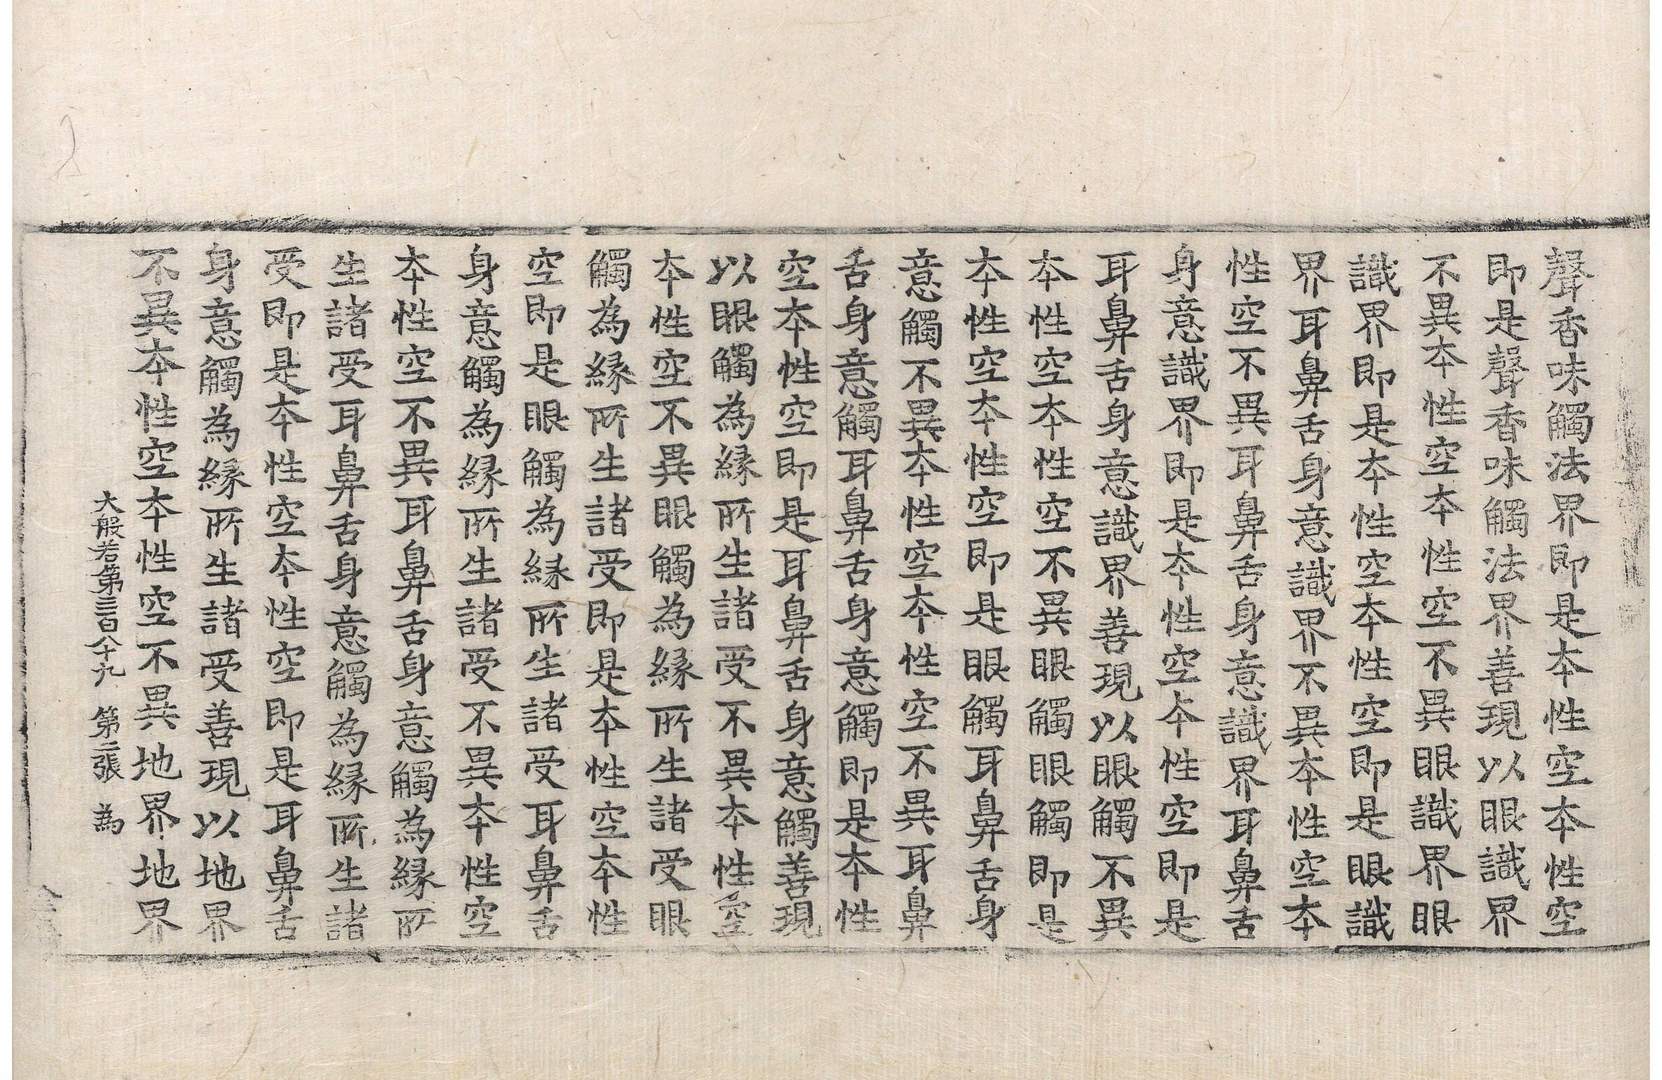 聲香味觸法界即是本性空本性空
即是聲香味觸法界善現以眼識界
不異本性空本性空不異眼識界眼
識界即是本性空本性空即是眼識
界耳鼻舌身意識界不異本性空本
性空不異耳鼻舌身意識界耳鼻舌
身意識界即是本性空本性空即是
耳鼻舌身意識界善現以眼觸不異
本性空本性空不異眼觸眼觸即是
本性空本性空即是眼觸耳鼻舌身
意觸不異本性空本性空不異耳鼻
舌身意觸耳鼻舌身意觸即是本性
空本性空即是耳鼻舌身意觸善現
以眼觸為縁所生諸受不異本性空
本性空不異眼觸為縁所生諸受眼
觸為縁所生諸受即是本性空本性
空即是眼觸為縁所生諸受耳鼻舌
身意觸為縁所生諸受不異本性空
本性空不異耳鼻舌身意觸為縁所
生諸受耳鼻舌身意觸為縁所生諸
受即是本性空本性空即是耳鼻舌
身意觸為縁所生諸受善現以地界
不異本性空本性空不異地界地界
大般若第三百八十九 第二張 為